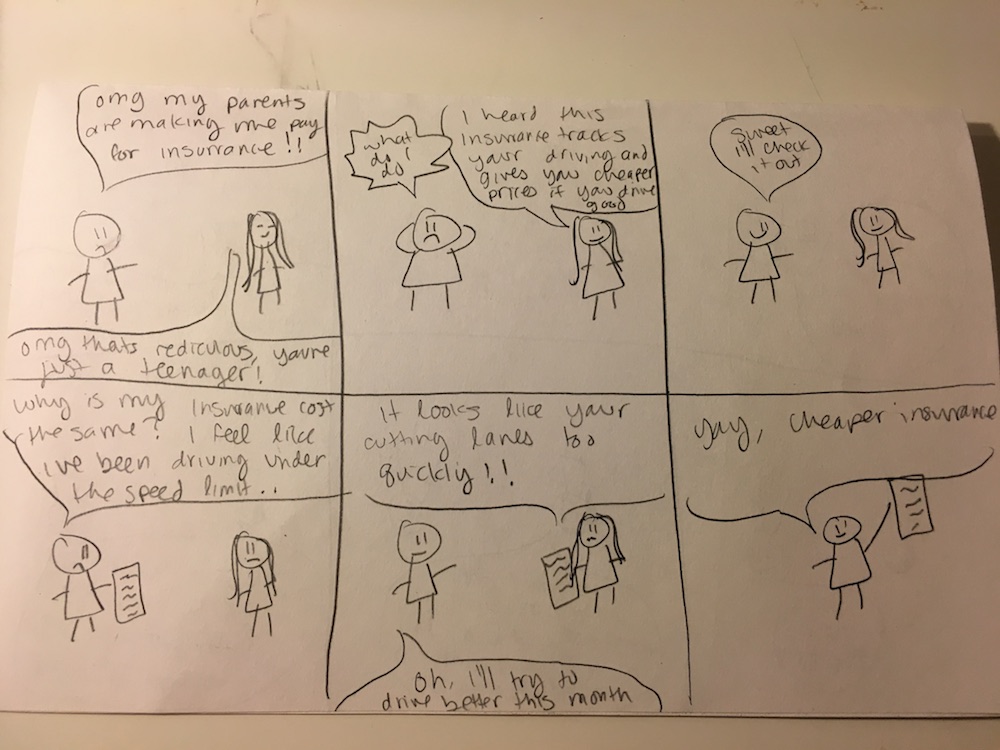 omg my parents
are making me pay
for insurrance !!
omg thats rediculous, youre
just a teenager!
what
do i
do
I heard this
insurrance tracks
your driving and
gives you cheaper
prices if you drive
good
sweet
i'll check
it out
why is my insurance cost
the same? I feel like
i've been driving under
the speed limit..
it looks like your
cutting lanes too
quickly!!
oh, i'll try to
drive better this month
yay, cheaper insurance